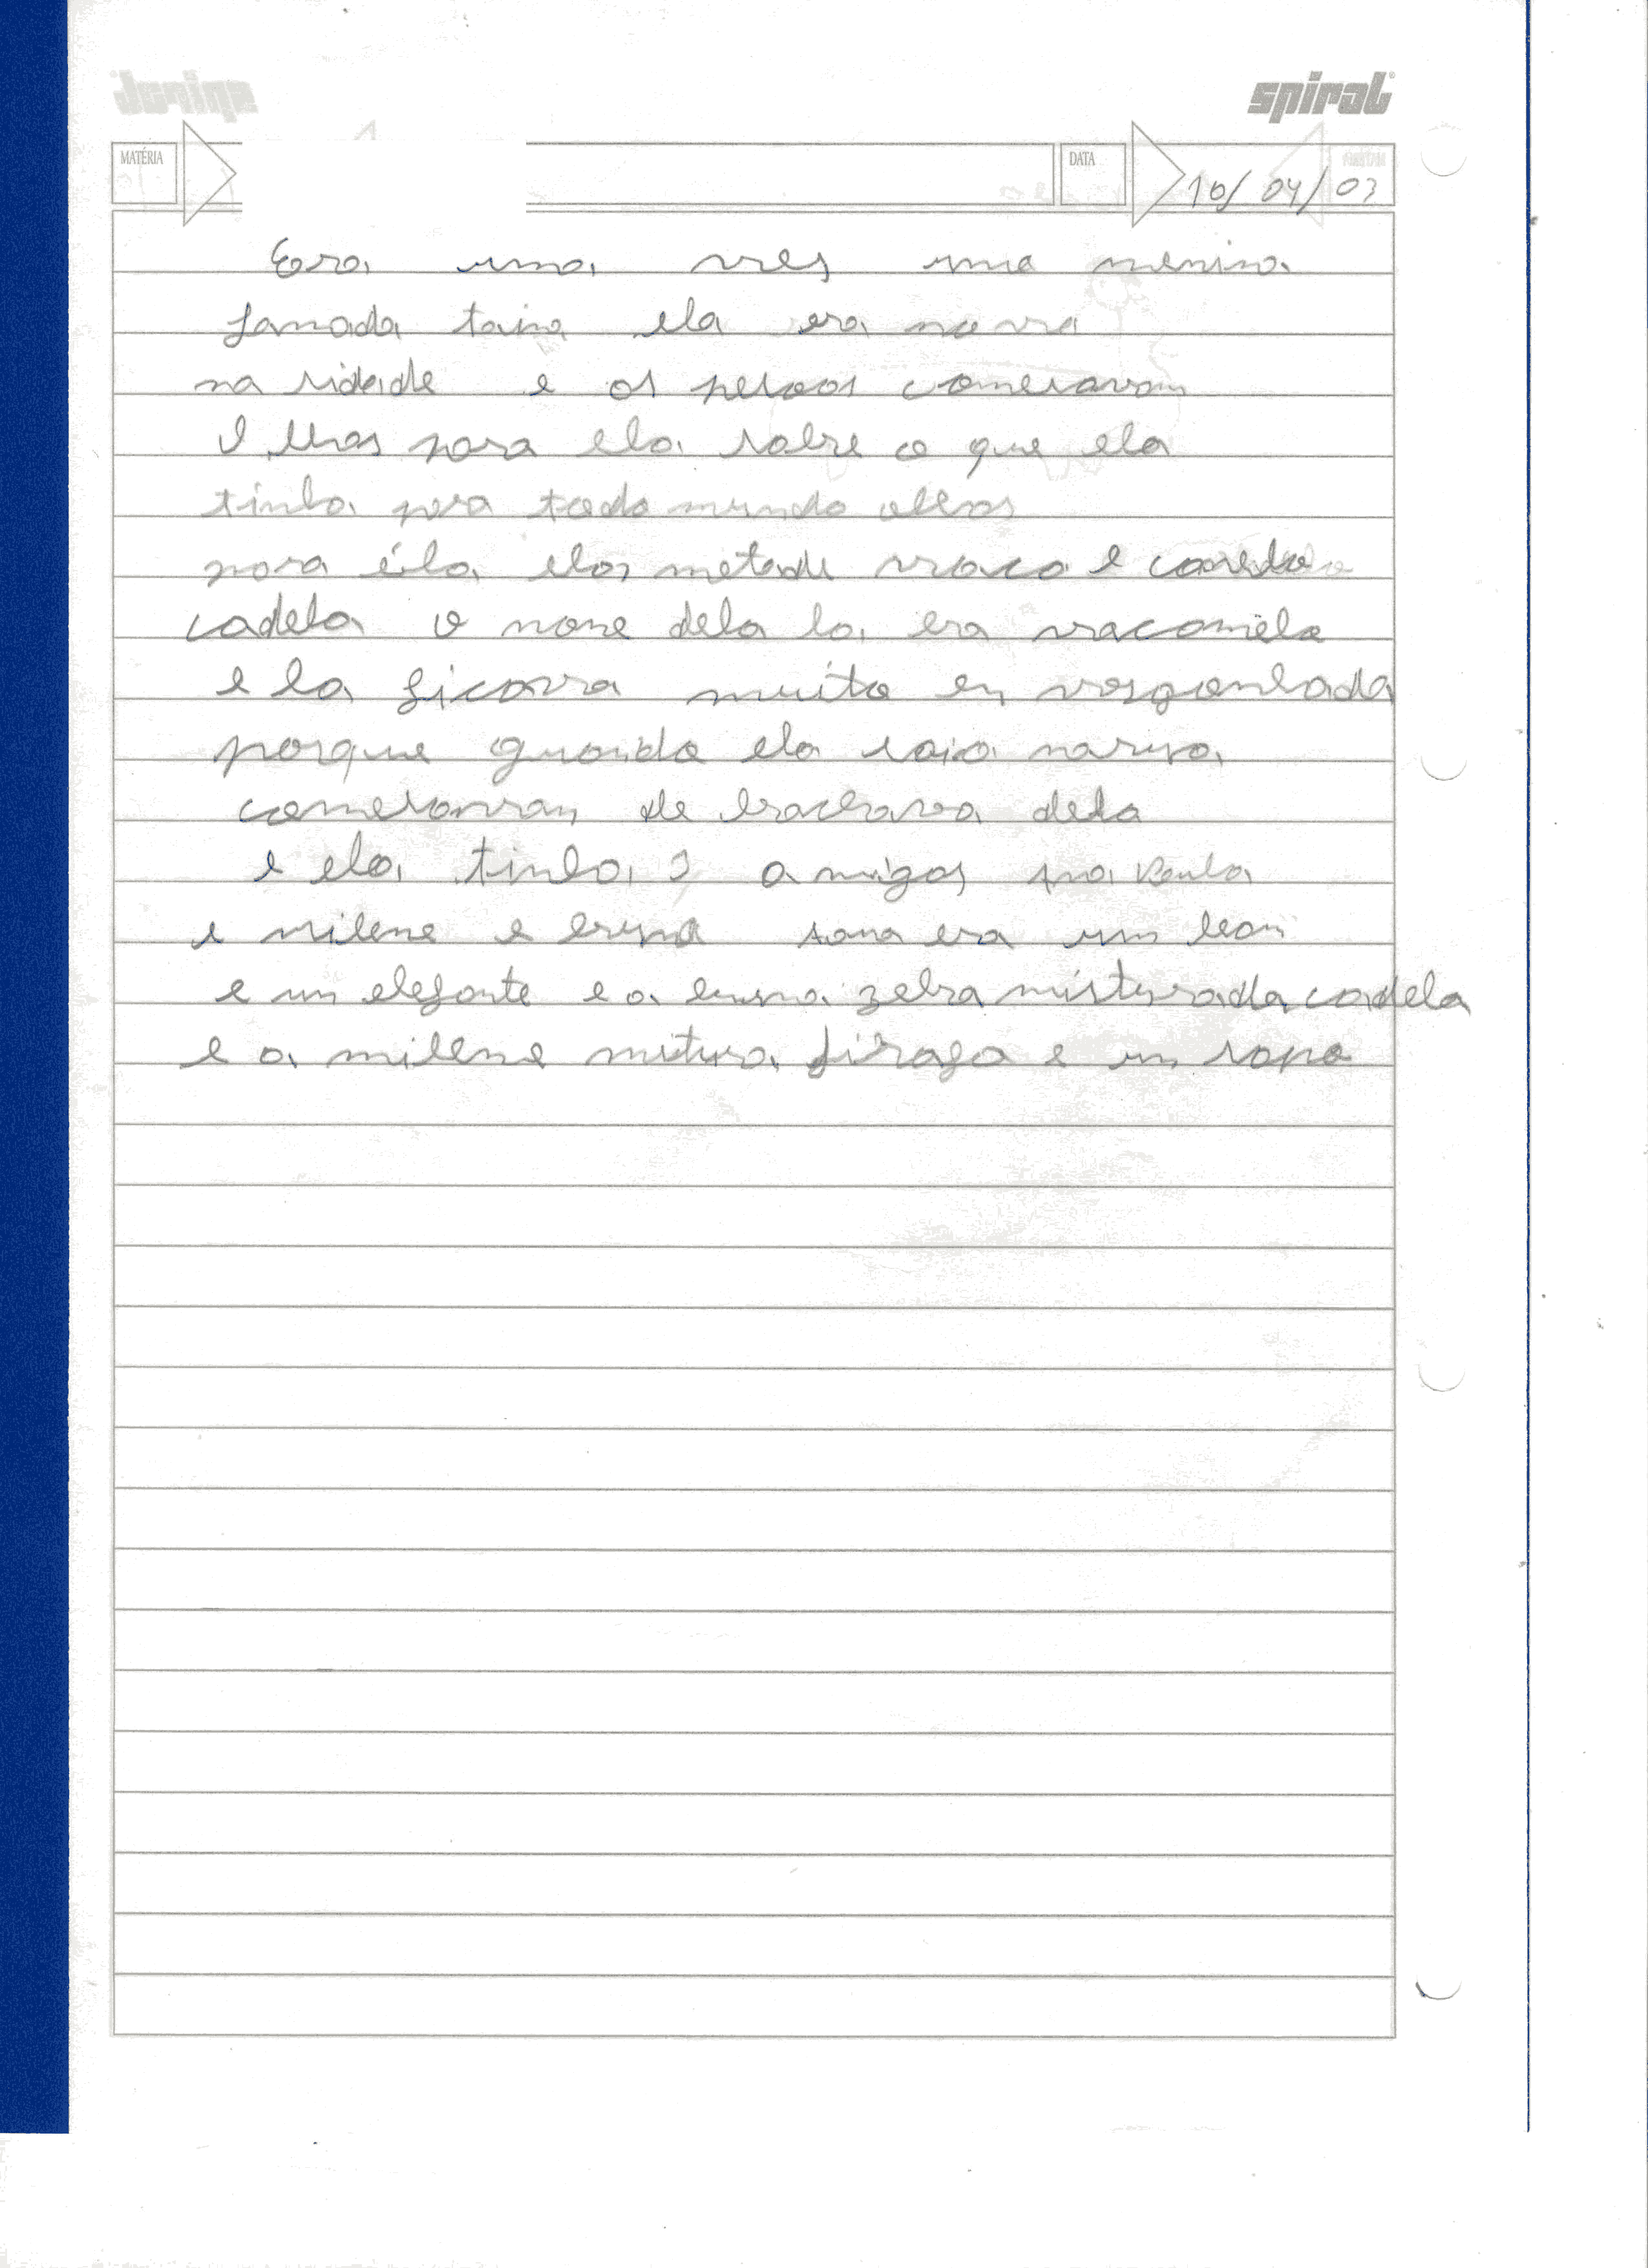 spiral
MATÉRIA
DATA
16/04/03
Era uma ves uma menina
jamada taina ela era nova
na sidade e os pesoas comesavam
O lhas para ela sobre o que ela
tinha para todo mundo olhas
para éla elas metade vaca e
cadela o nome dela la era vacamela
e la ficava muito en vergonhada
porque quando ela saia narua
comesavam de dela
e ela tinha 3 amigas ana Paula
e milene e bruna era um leon
e um elefante e a bruna zebra misturada cadela
e a milene mistura jirafa e um sapo